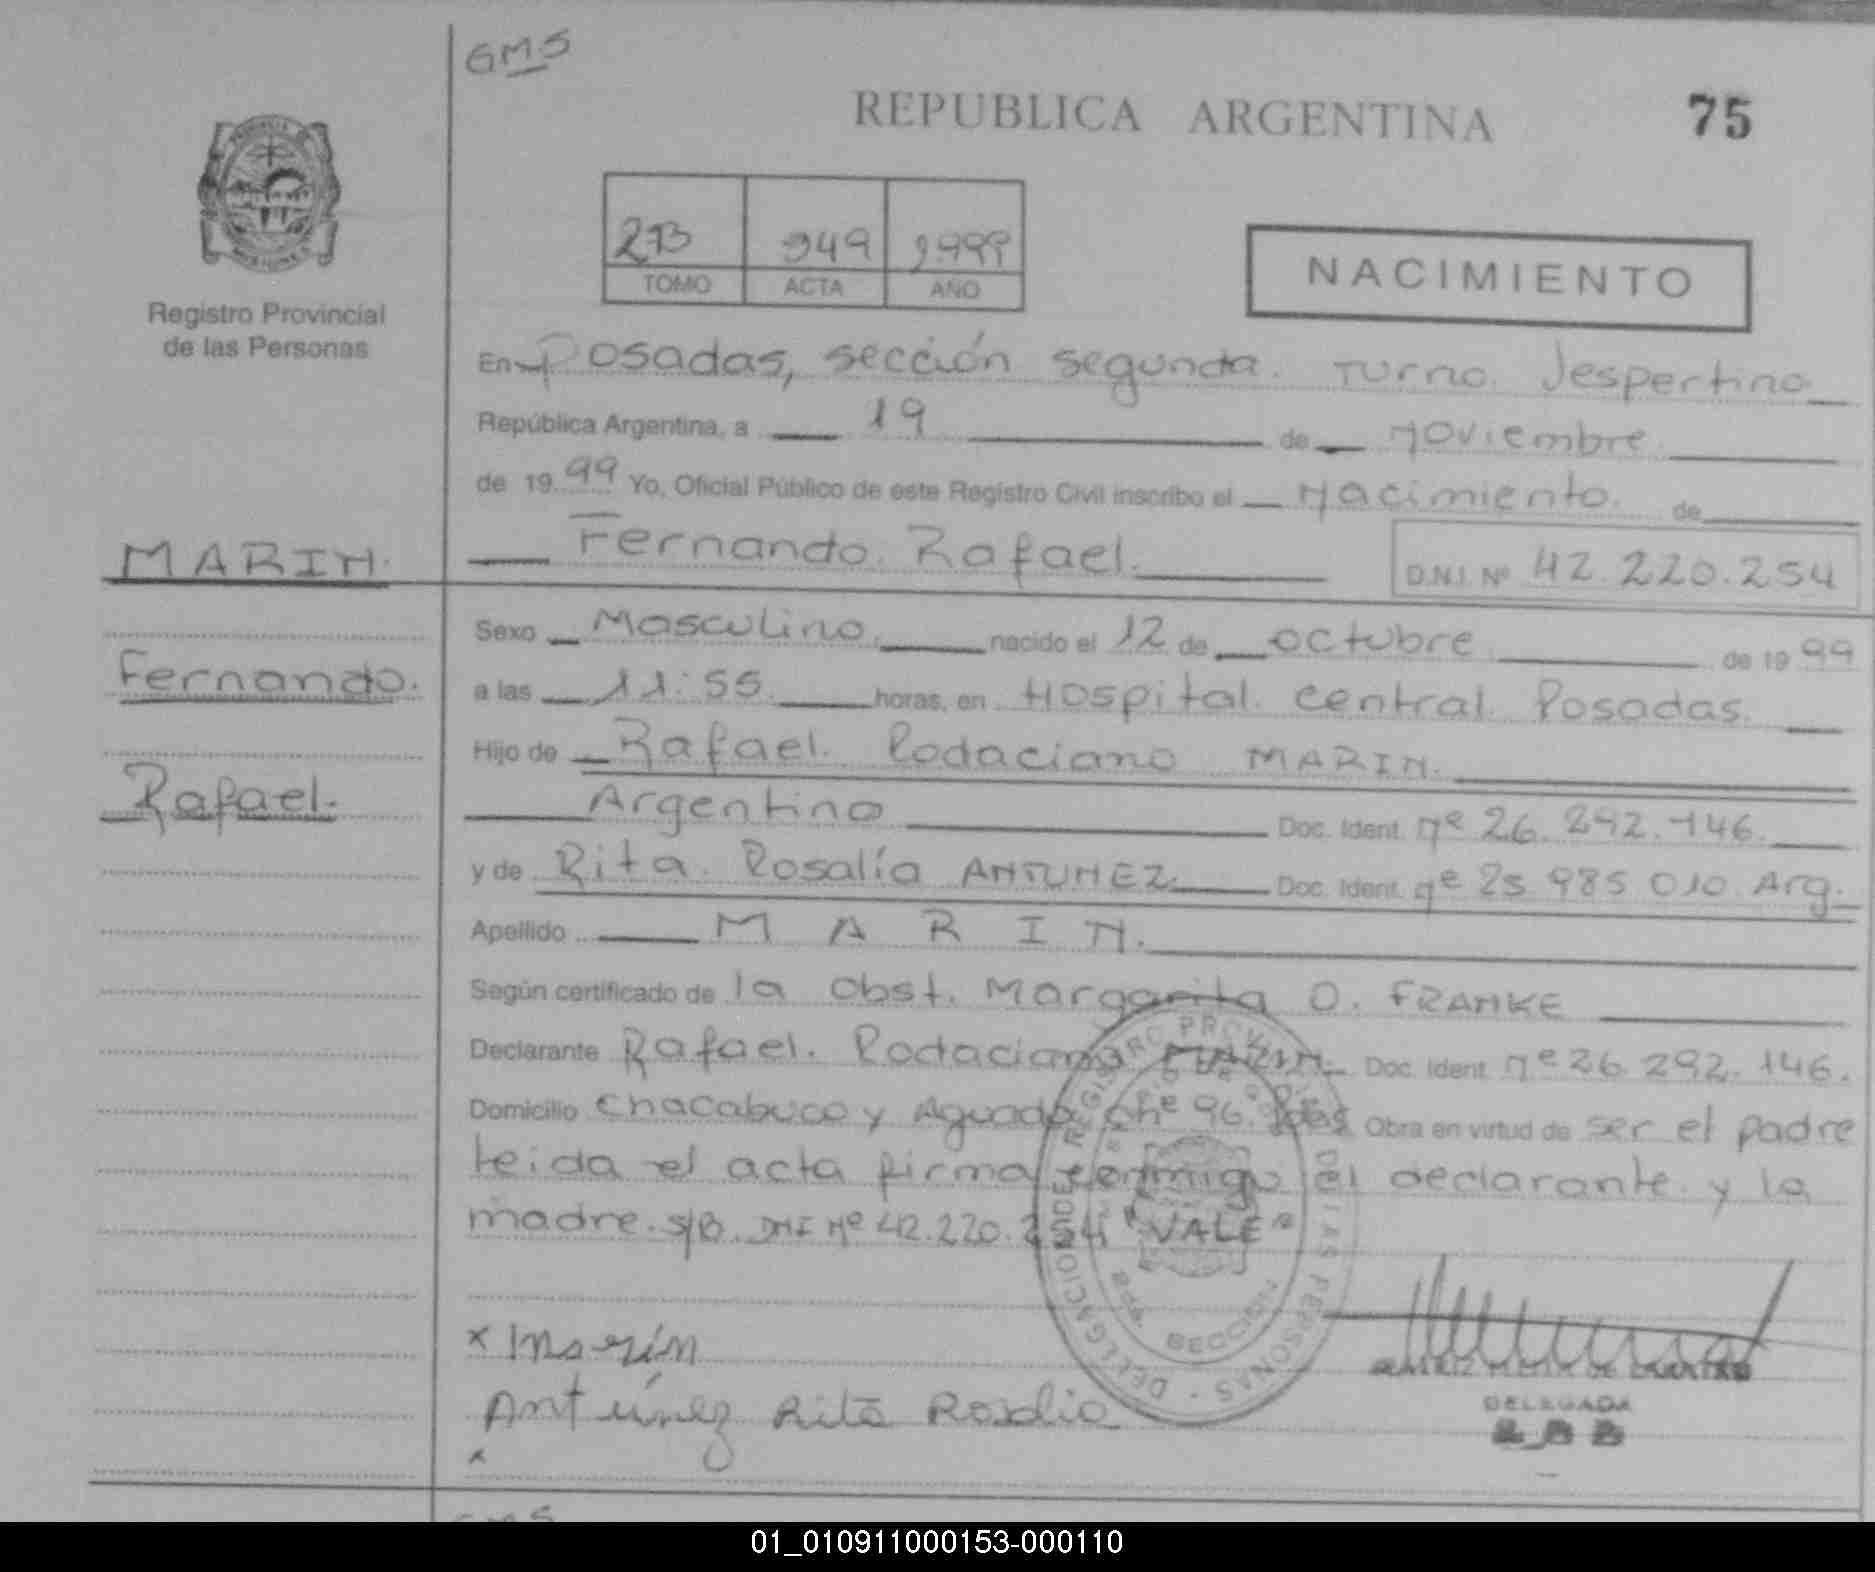 GMS
REPUBLICA ARGENTINA
75
Registro Provincial
de las Personas
949 1.999
TOMO ACTA AÑO
NACIMIENTO
En Posadas, sección segunda. Turno Vespertino
República Argentina, a 19 de Noviembre
de 1999 Yo, Oficial Público de este Registro Civil inscribo el Nacimiento. de
MARIN. Fernando. Rafael. D.N.I. Nº 42.220.254
Sexo Masculino nacido el 12 de octubre de 1999
Fernando. a las 11:55 horas, en Hospital. Central. Posadas.
Hijo de Rafael. Rodaciano MARIN.
Rafael. Argentino Doc. Ident. nº 26.292.146.
y de Rita. Rosalía ANTUNEZ Doc. Ident. nº 25 985 010 Arg.
Apellido M A R I N.
Según certificado de la Obst. Margarita O. FRANKE
Declarante Rafael. Rodaciano MARIN. Doc. Ident. nº 26.292.146.
Domicilio Chacabuco y Aguado Chº 96. Pdas Obra en virtud de ser el padre
leida el acta firma conmigo el declarante y la
madre. S/B. DNI Nº 42.220.254 "VALE"
DELEGACION REGISTRO PROVINCIAL DE LAS PERSONAS
x Marín
Antúnez Rita Rosalia
x
DELEGADA
GMS
01_010911000153-000110